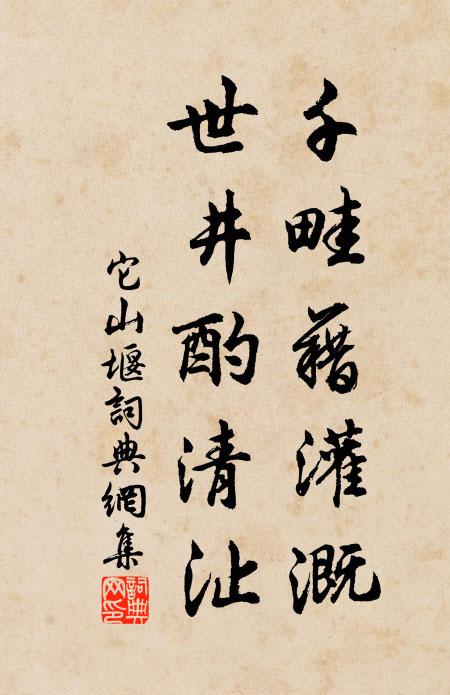 千畦藉灌溉
世井酌清沚
它山堰詞典網集
詞典網印